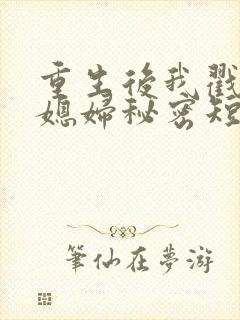 重生後我戳
媳婦秘密短
筆仙在夢游